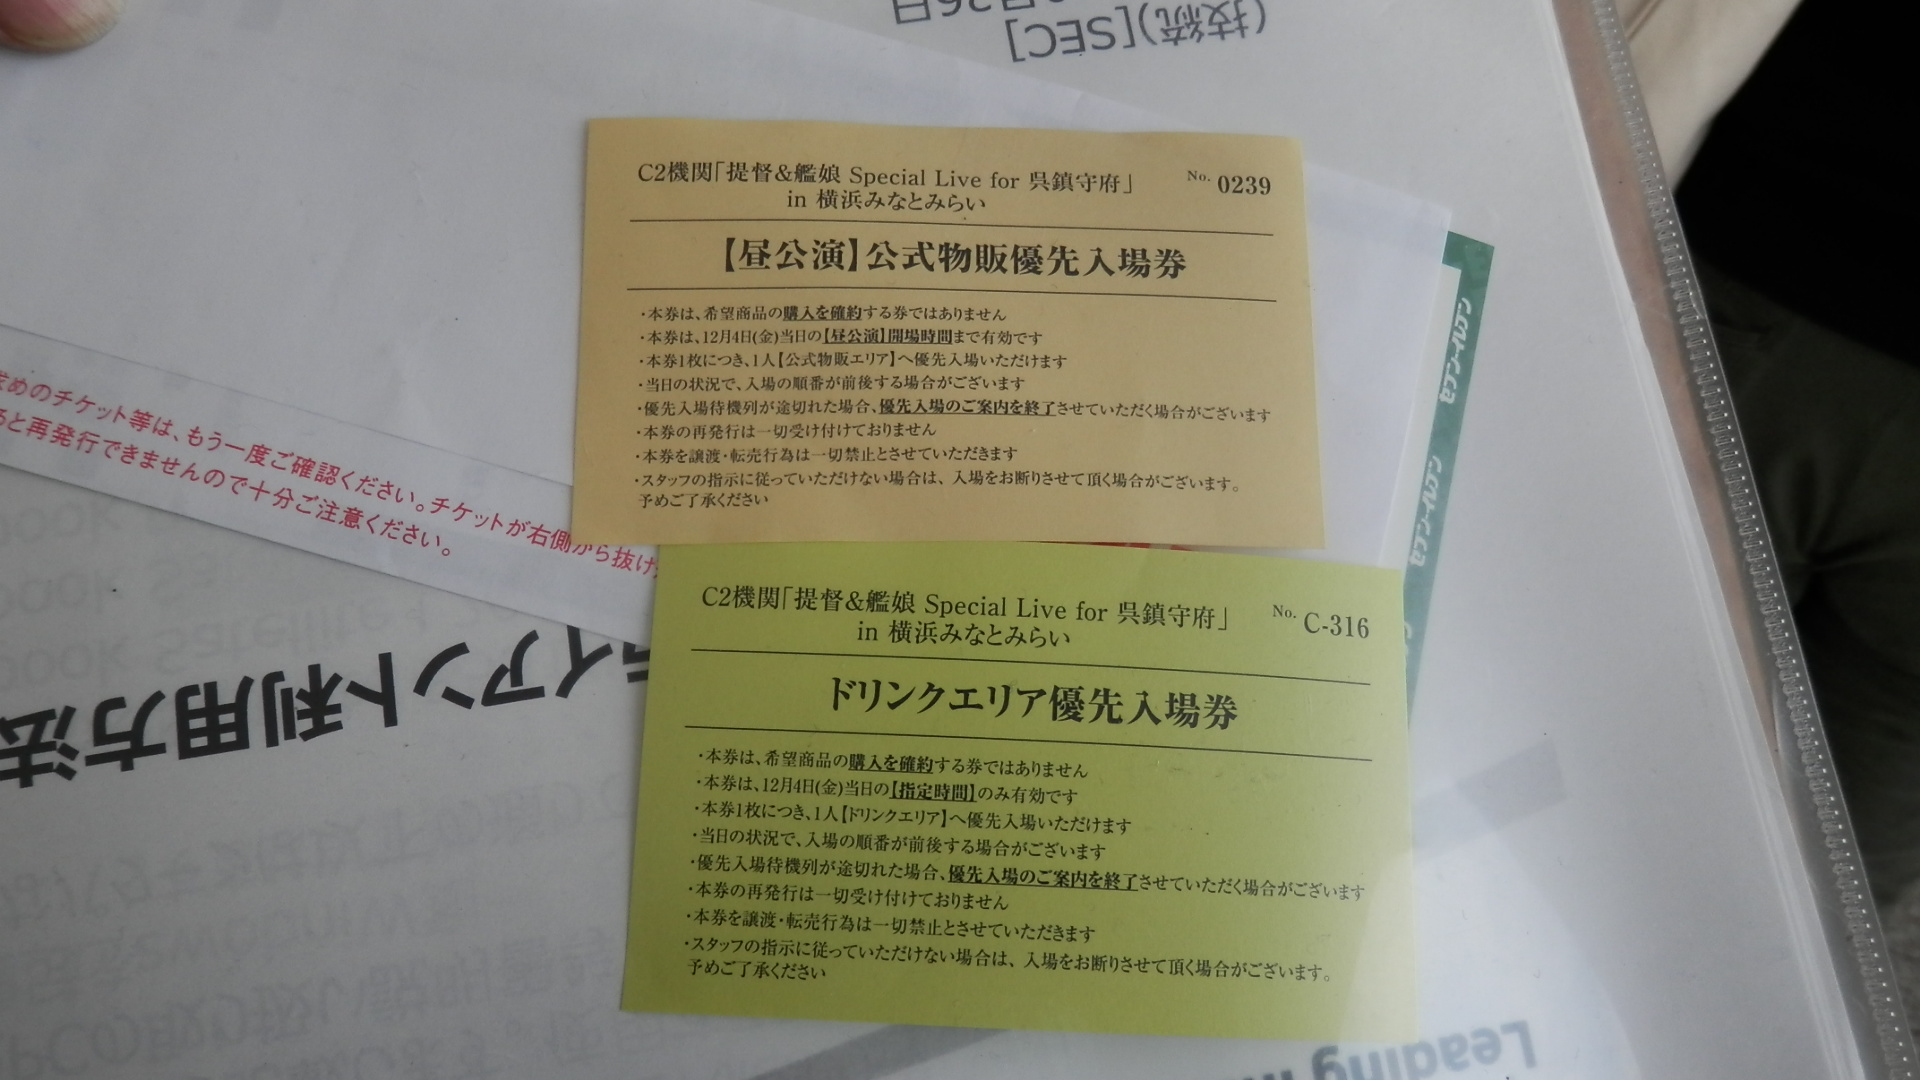 (技統)[SEC]
C2機関「提督&艦娘 Special Live for 呉鎮守府」
in 横浜みなとみらい
No. 0239
【昼公演】公式物販優先入場券
・本券は、希望商品の購入を確約する券ではありません
・本券は、12月4日(金)当日の【昼公演】開場時間まで有効です
・本券1枚につき、1人【公式物販エリア】へ優先入場いただけます
・当日の状況で、入場の順番が前後する場合がございます
・優先入場待機列が途切れた場合、優先入場のご案内を終了させていただく場合がございます
・本券の再発行は一切受け付けておりません
・本券を譲渡・転売行為は一切禁止とさせていただきます
・スタッフの指示に従っていただけない場合は、入場をお断りさせて頂く場合がございます。
予めご了承ください
セブン-イレブン
セブン-イレブン
求めのチケット等は、もう一度ご確認ください。チケットが右側から抜け
ると再発行できませんので十分ご注意ください。
C2機関「提督&艦娘 Special Live for 呉鎮守府」
in 横浜みなとみらい
No. C-316
ドリンクエリア優先入場券
・本券は、希望商品の購入を確約する券ではありません
・本券は、12月4日(金)当日の【指定時間】のみ有効です
・本券1枚につき、1人【ドリンクエリア】へ優先入場いただけます
・当日の状況で、入場の順番が前後する場合がございます
・優先入場待機列が途切れた場合、優先入場のご案内を終了させていただく場合がございます
・本券の再発行は一切受け付けておりません
・本券を譲渡・転売行為は一切禁止とさせていただきます
・スタッフの指示に従っていただけない場合は、入場をお断りさせて頂く場合がございます。
予めご了承ください
イアント利用方法
Leading